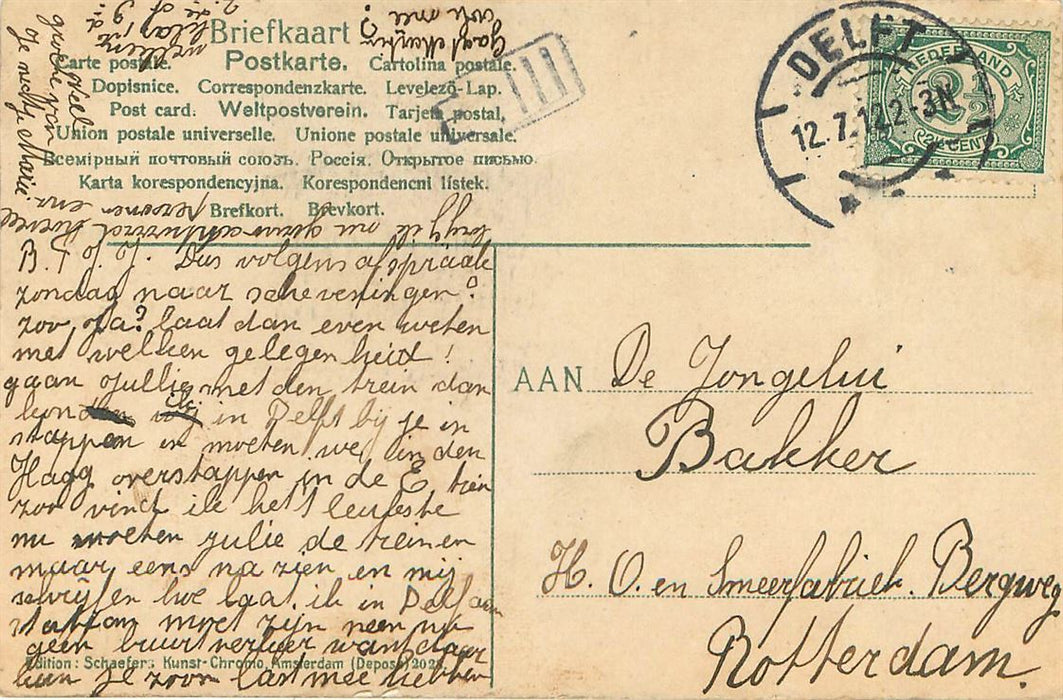 Briefkaart
Carte postale. Postkarte. Cartolina postale.
Dopisnice. Correspondenzkarte. Levelező-Lap.
Post card. Weltpostverein. Tarjeta postal.
Union postale universelle. Unione postale universale.
Всемірный почтовый союзъ. Россія. Открытое письмо.
Karta korespondencyjna. Korespondencni lístek.
Brefkort. Brevkort.
DELFT
12.7.12 2-3N
NEDERLAND
2½
2½ CENT
B. T J. J. Dus volgens afspraak
zondag naar scheveningen?
zoo, Ja? laat dan even weten
met welken gelegenheid!
gaan jullie met den trein dan
kon ik in Delft bij je in
stappen en moeten we in den
Haag overstappen in de E trein
zoo vind ik het leukste
nu moeten julie de treinen
maar eens na zien en mij
schrijfen hoe laat ik in Delf aan
station moet zijn neen nu
geen buurtverkeer want daar
kan je zoon last mee hebben
krijg ik nu gauw antwoord hoeveel
personen enz.
Heel
groete van
je nichtje Marie
AAN De Jongelui
Bakker
H. O. en Smeerfabriek. Bergweg
Rotterdam.
Edition: Schaefers Kunst-Chromo, Amsterdam (Deposé) 202